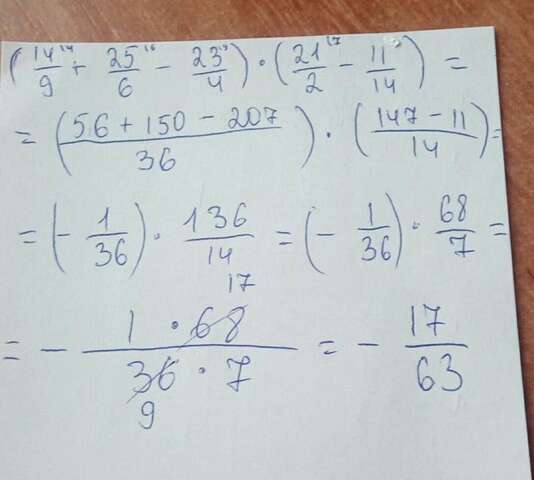 (14/9 + 25/6 − 23/4) · (21/2 − 11/14) =
= (56 + 150 − 207 / 36) · (147 − 11 / 14) =
= (− 1/36) · 136/14 = (− 1/36) · 68/7 =
17
= − 1 · 68 / 36 · 7 = − 17/63
9